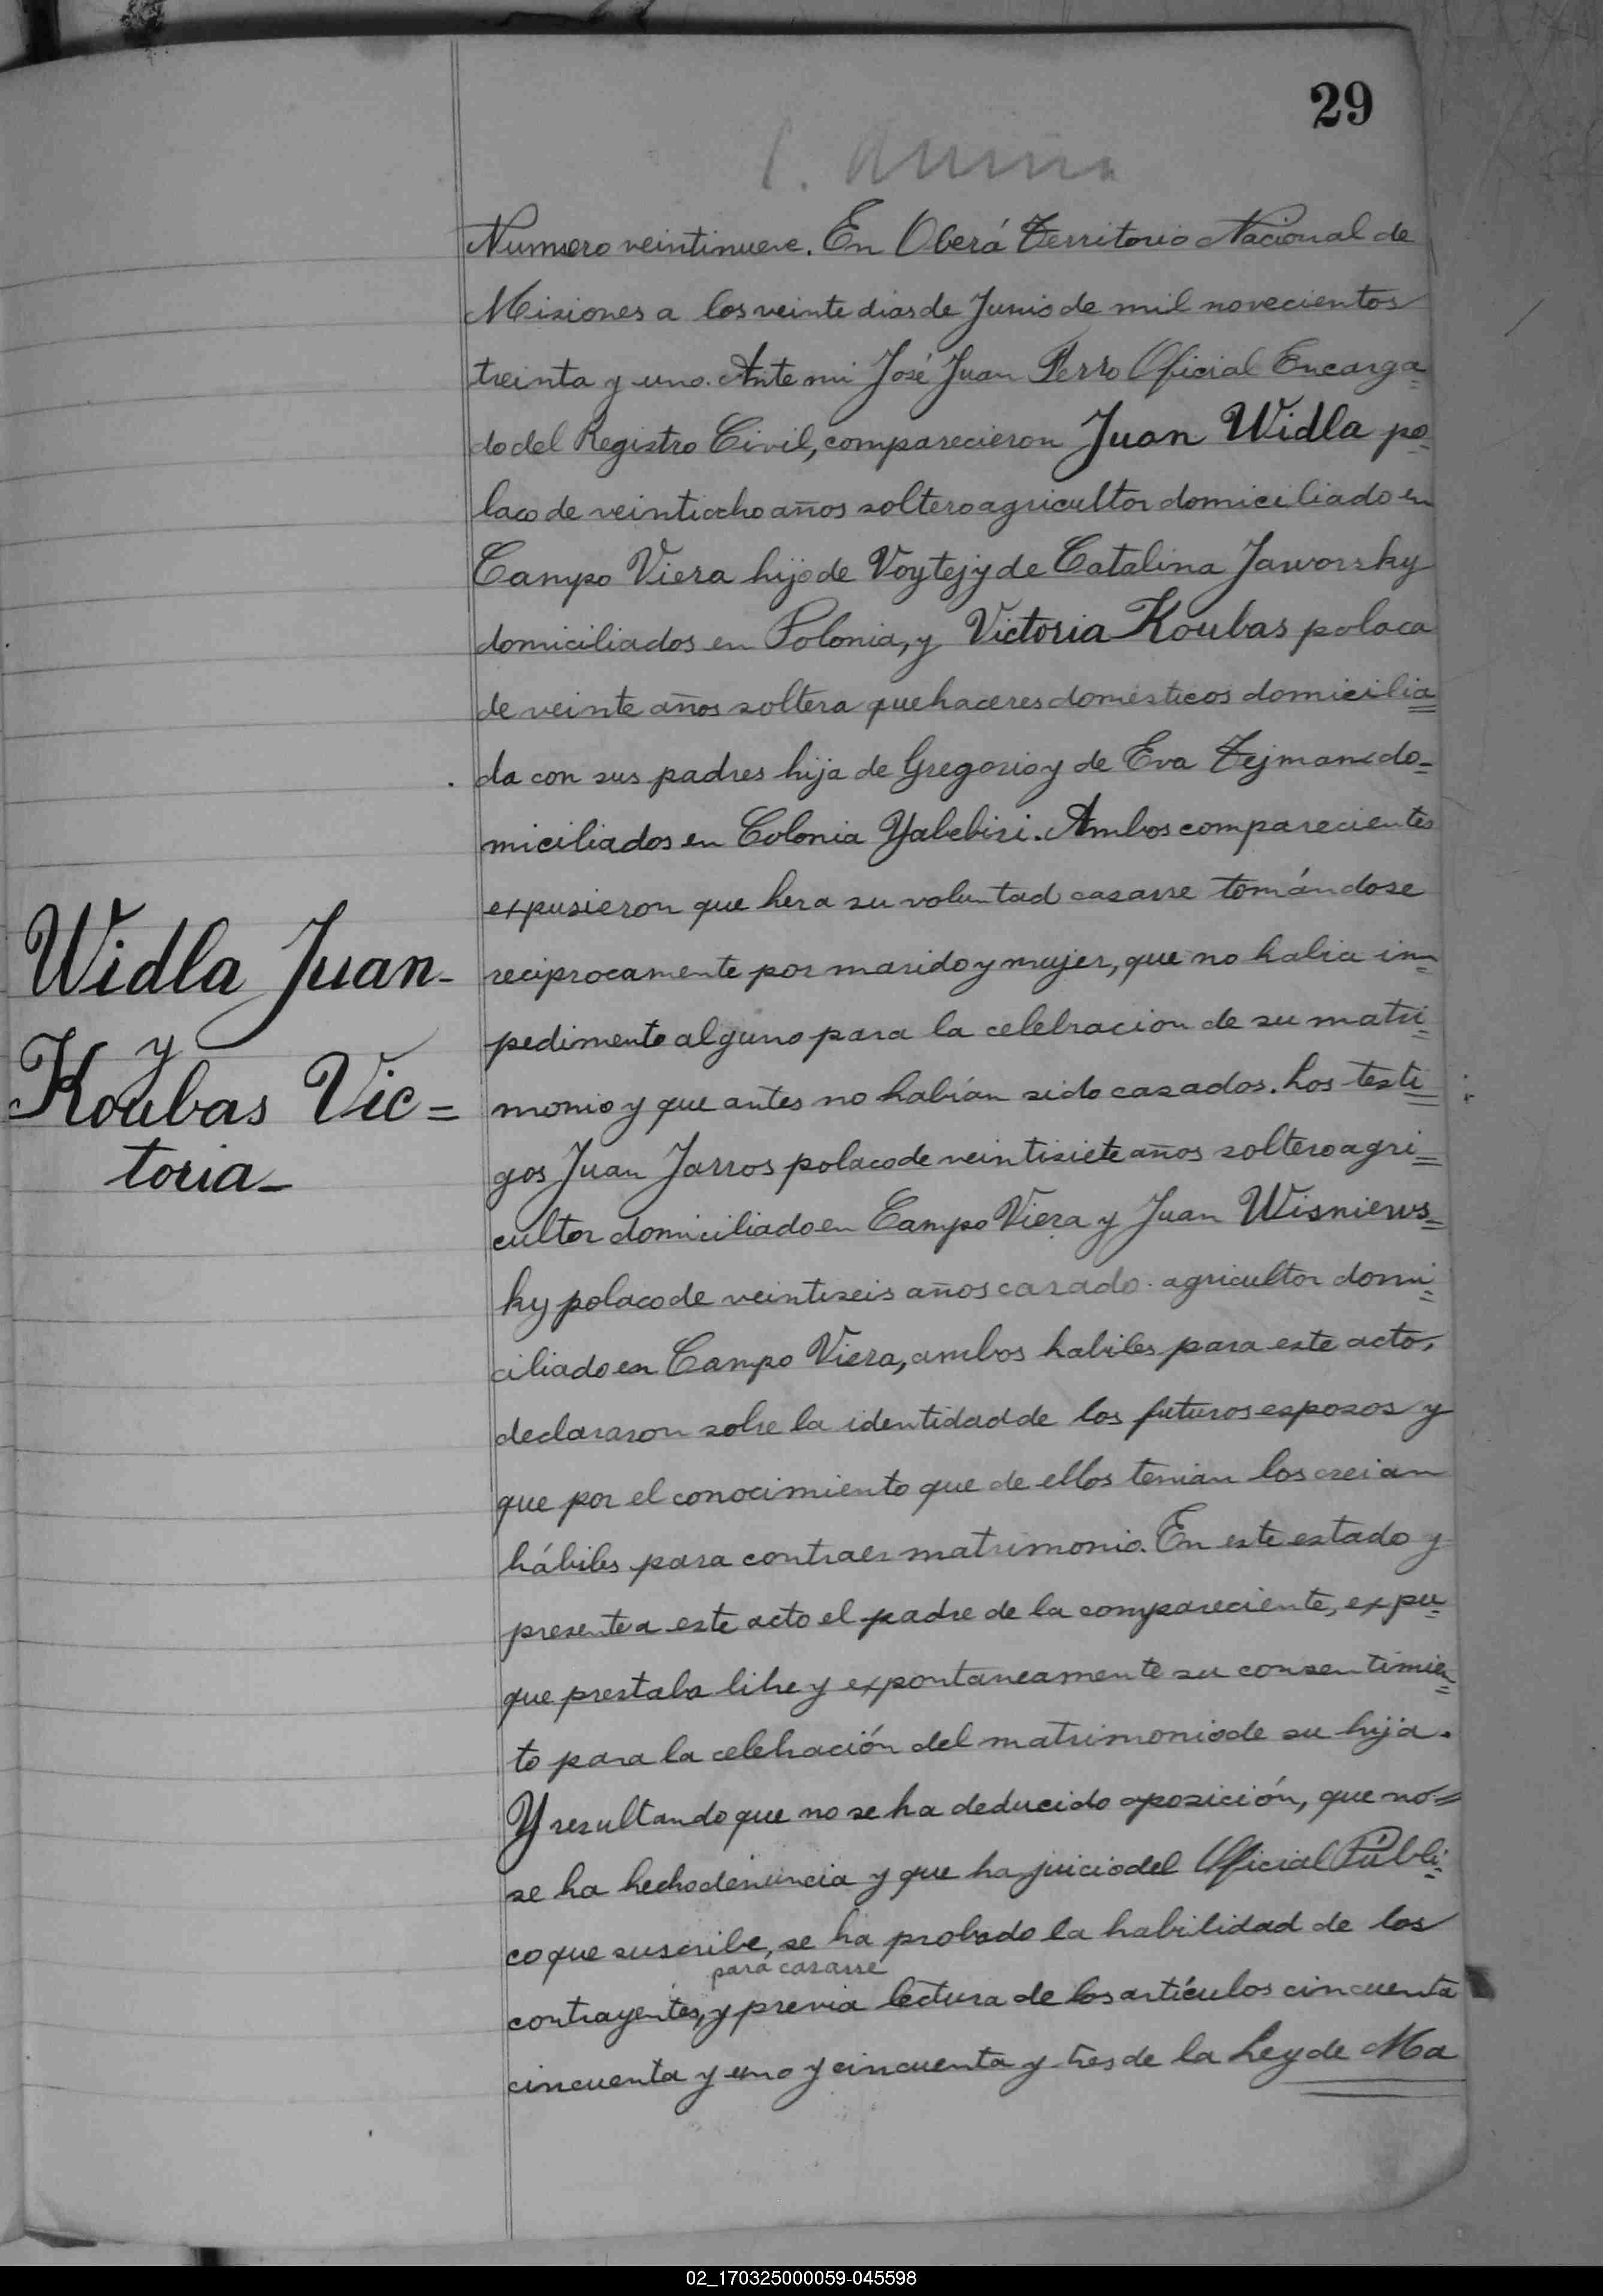 29
Numero veintinueve. En Oberá Territorio Nacional de
Misiones a los veinte dias de Junio de mil novecientos
treinta y uno. Ante mi José Juan Ferro Oficial Encarga=
do del Registro Civil, comparecieron Juan Widla po=
laco de veintiocho años soltero agricultor domiciliado en
Campo Viera hijo de Voytej y de Catalina Jaworsky
domiciliados en Polonia, y Victoria Koubas polaca
de veinte años soltera quehaceres domésticos domicilia=
da con sus padres hija de Gregorio y de Eva Tejman do=
miciliados en Colonia Yabebiri. Ambos comparecientes
expusieron que hera su voluntad casarse tomándose
reciprocamente por marido y mujer, que no habia im=
pedimento alguno para la celebracion de su matri=
monio y que antes no habían sido casados. Los testi=
gos Juan Jarros polaco de veintisiete años soltero agri=
cultor domiciliado en Campo Viera y Juan Wisniews=
ky polaco de veintiseis años casado agricultor domi=
ciliado en Campo Viera, ambos habiles para este acto,
declararon sobre la identidad de los futuros esposos y
que por el conocimiento que de ellos tenian los creian
hábiles para contraer matrimonio. En este estado y
presente a este acto el padre de la compareciente, expu=
que prestaba libre y expontaneamente su consentimien=
to para la celebración del matrimonio de su hija.
Y resultando que no se ha deducido oposición, que no=
se ha hecho denuncia y que ha juicio del Oficial Públi=
co que suscribe, se ha probado la habilidad de los
para casarse
contrayentes, y previa lectura de los artículos cincuenta
cincuenta y uno y cincuenta y tres de la Ley de Ma
Widla Juan-
y
Koubas Vic=
toria-
02_170325000059-045598